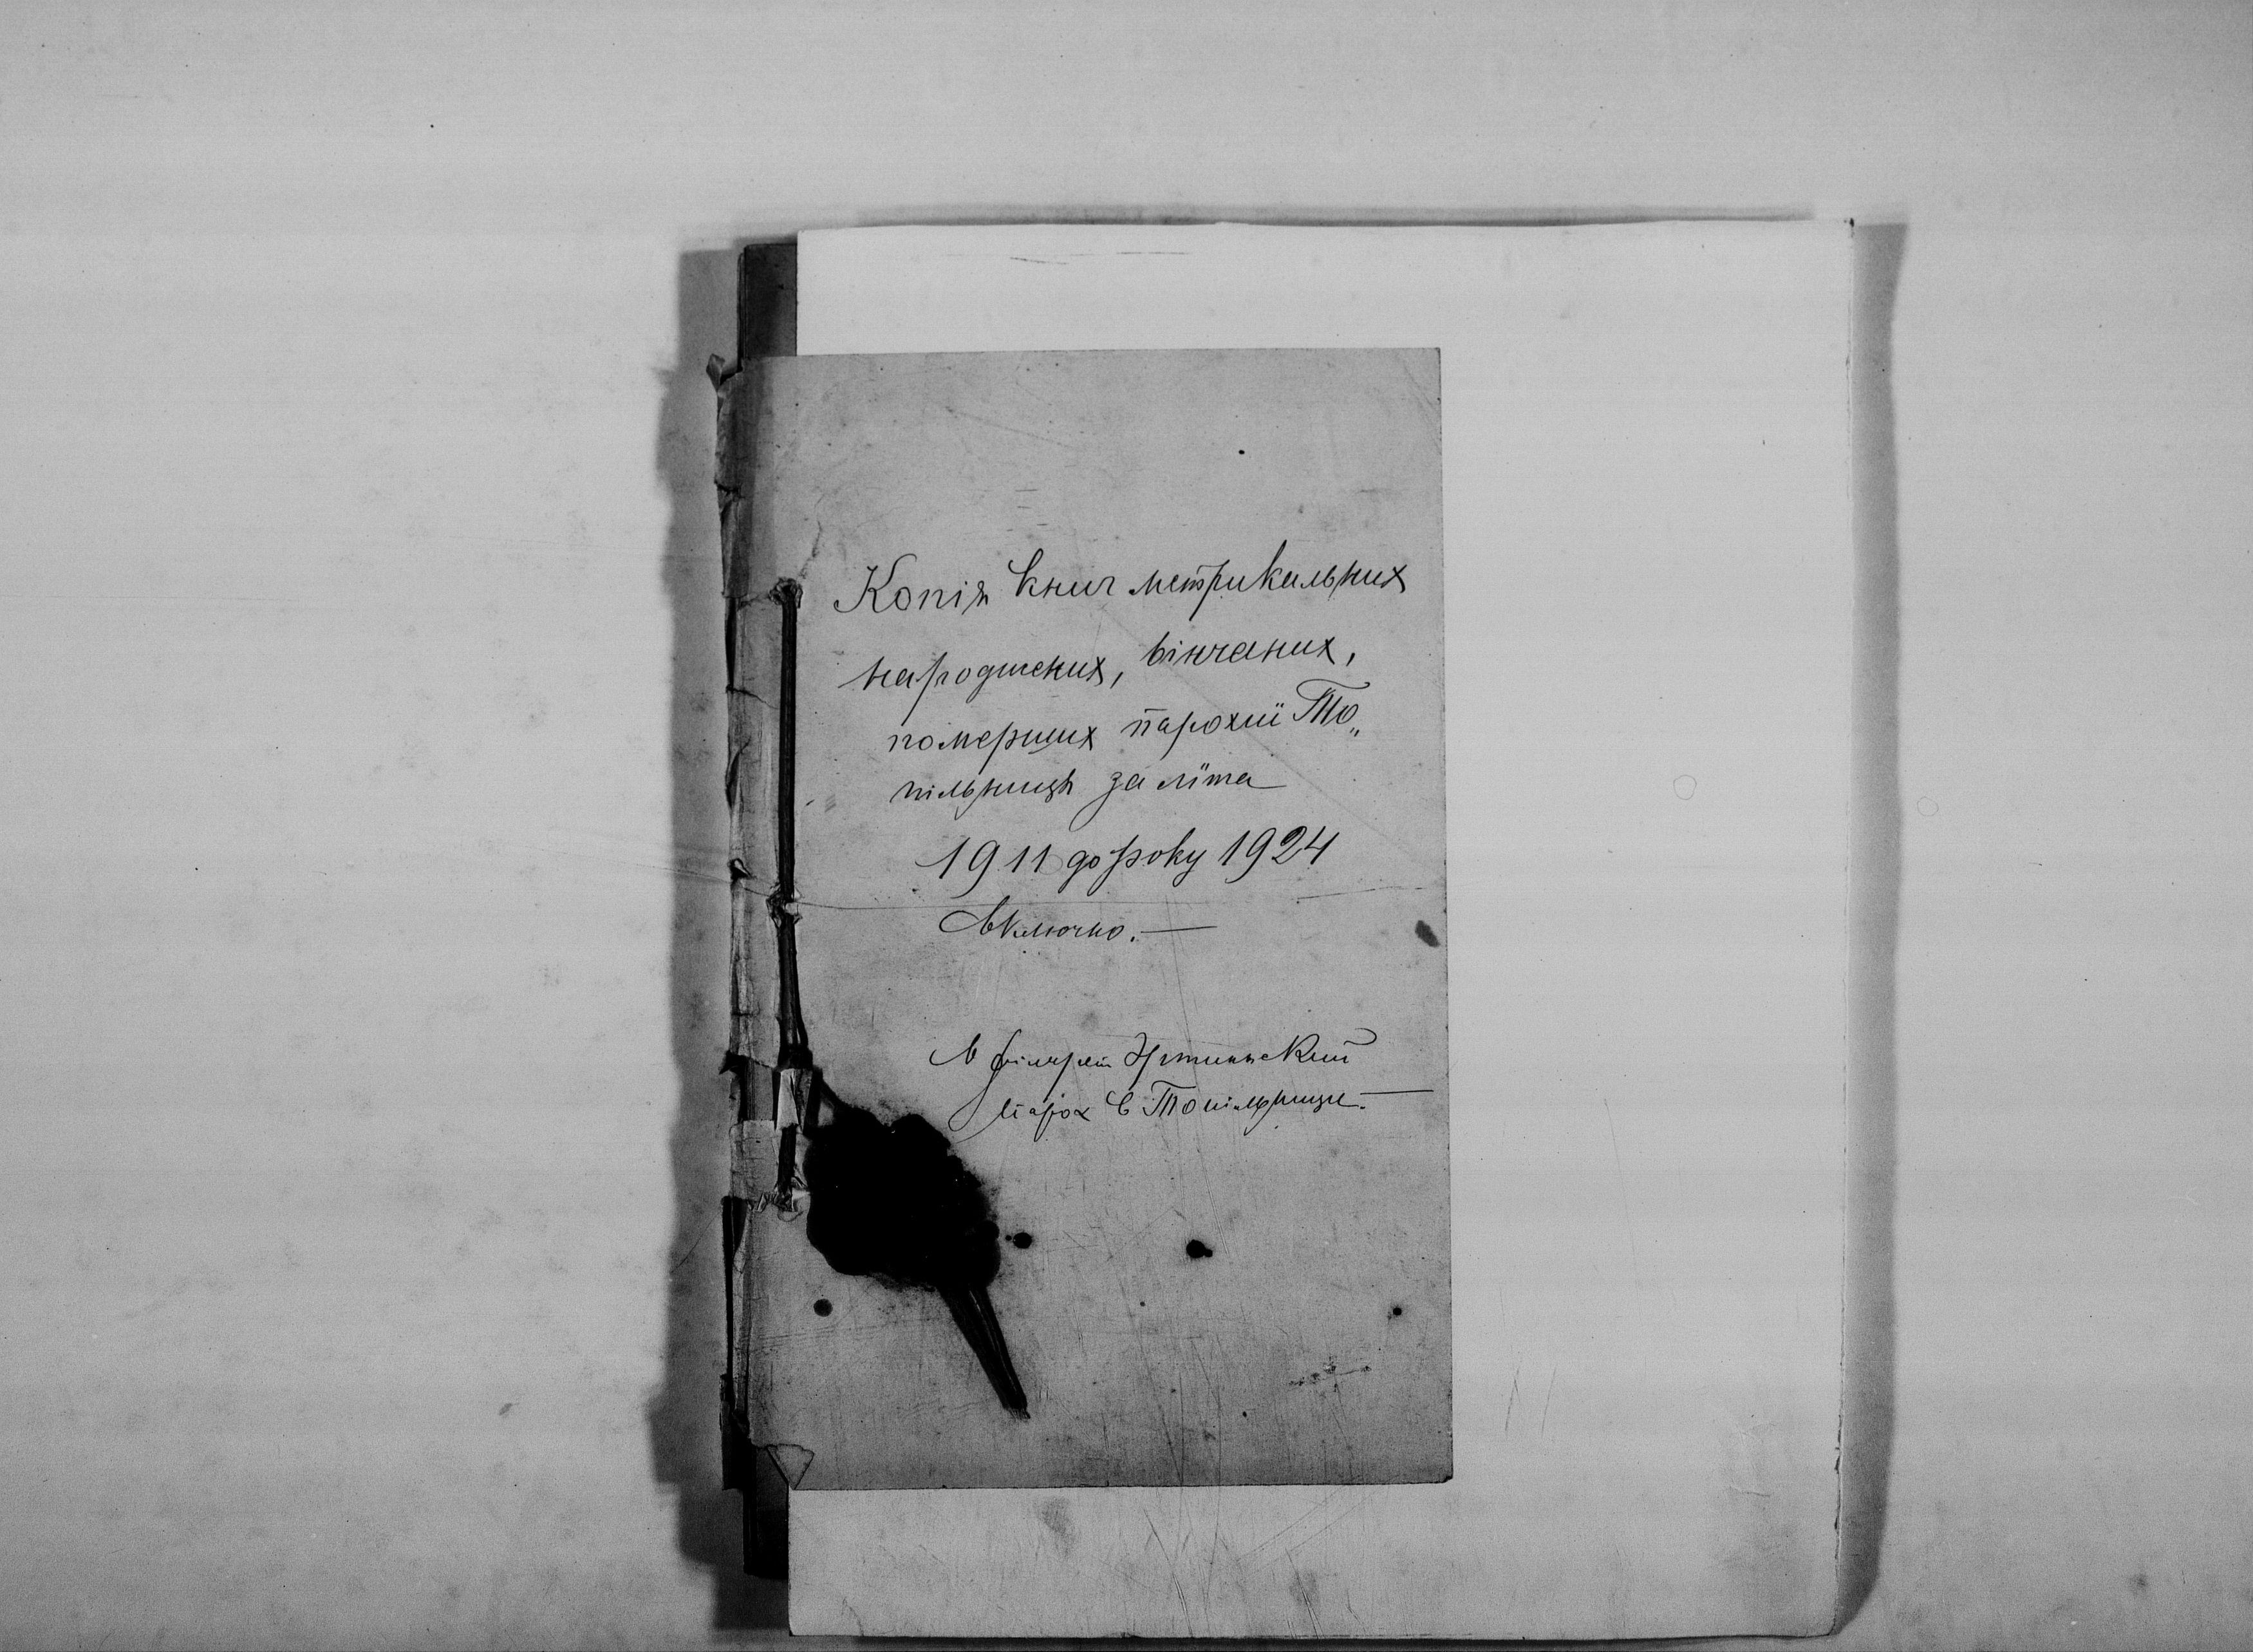 Копія книг метрикальних
народжених, вінчаних,
померших парохії То„
пільниця за літа
1911 до року 1924
включно.—
парох в Топільници.—